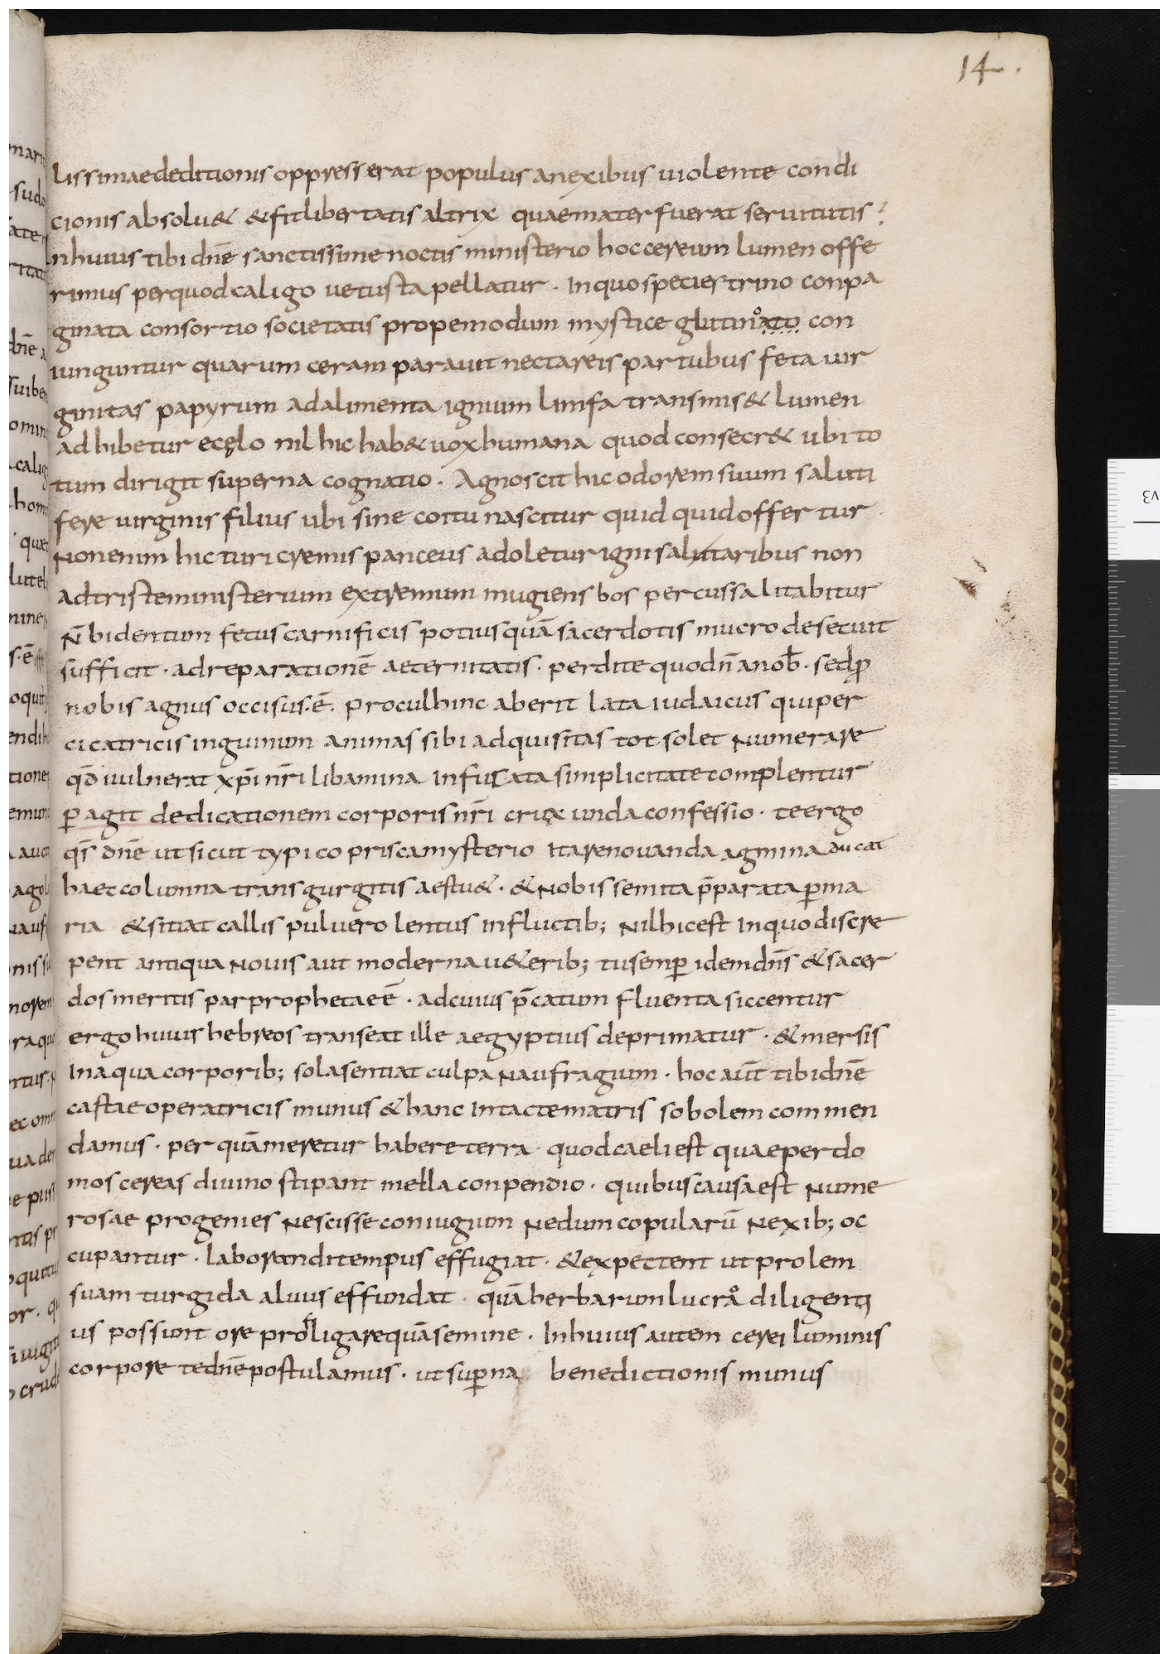 14.
lissimaededitionis oppresserat populus anexibus uiolente condi
cionis absolu& &fitlibertatis altrix quaemater fuerat seruitutis
nhuius tibi dnē sanctissime noctis ministerio hoccereum lumen offe
rimus perquod caligo uetusta pellatur. Inquo species trino conpa
ginata consortio societatis propemodum mystice glutinato con
iunguntur quarum ceram parauit nectareis partubus feta uir
ginitas papyrum adalimenta ignium limfa transmis& lumen
adhibetur ecęlo nil hic hab& uoxhumana quod consecr& ubi to
tum dirigit superna cognatio. Agnoscit hic odorem suum saluti
fere uirginis filius ubi sine coitu nascitur quid quid offertur
Nonenim hic turicremis panceus adoletur igni salutaribus non
adtristeministerium extremum mugiens bos percussa litabitur
N̄ bidentum fetus carnificis potiusquā sacerdotis mucro deseruit
sufficit · adreparationē aeternitatis · perdite quodn̄ anob̄ · sedp
nobis agnus occisus.ē. procul hinc aberit lata iudaicus quiper
cicatricis inguinum animas sibi adquisitas tot solet numerare
qd̄ iuulnerat xp̄i nr̄i libamina infucata simplicitate complentur
p agit dedicationem corporis nr̄i crux unda confessio · teergo
qs̄ dnē ut sicut typico priscamysterio Itarenouanda agmina ducat
haec columna trans gurgitis aestu& · & nobis semita p̄parata pma
ria &sitiat callis puluero lentus influctib; Nilhicest Inquo discre
pent antiqua nouis aut moderna u&erib; tusemp idemdn̄s & sacer
dos meritis par prophetae ē · adcuius p̄catum fluenta siccentur
ergo huius hebreos transeat ille aegyptius deprimatur · & mersis
Inaqua corporib; solasentiat culpa naufragium · hoc aūt tibi dnē
castae operatricis munus & hanc Intactematris sobolem commen
damus · per quāmeretur habere terra · quodcaeliest quaeperdo
mos cereas diuino stipant mella conpendio · quibus causaest nume
rosae progenies Nescisse coniugium Nedum copularū Nexib; oc
cupantur · laboranditempus effugiat · &expectent ut prolem
suam turgida aluus effundat · quā herbarum lucra diligenti
us possunt ore proligarequāsemine · Inhuius autem cerei luminis
corpore tednē postulamus · ut supna benedictionis munus